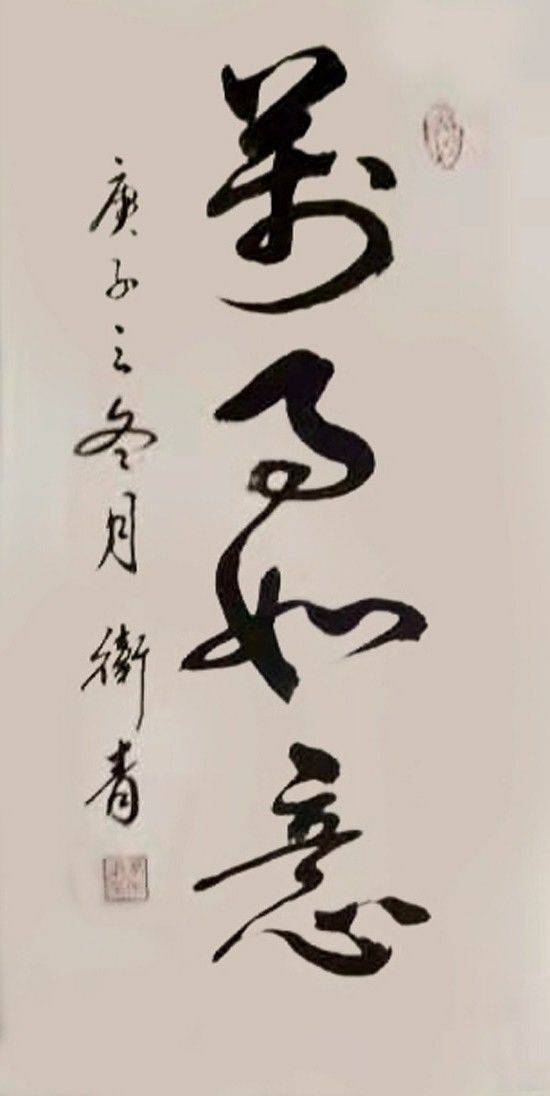 萬事如意
庚子之冬月 衛青